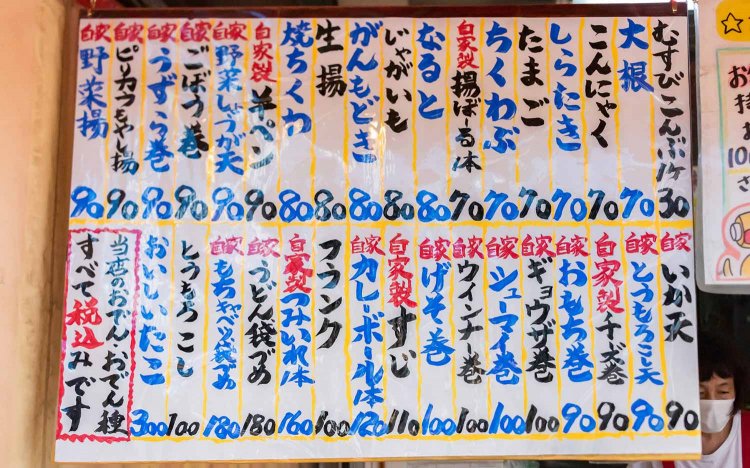 むすびこんぶ1ケ 30
大根 70
こんにゃく 70
しらたき 70
たまご 70
ちくわぶ 70
自家製 揚ぼーる1本 70
なると 80
じゃがいも 80
がんもどき 80
生揚 80
焼ちくわ 80
自家製 半ペン 90
自家 野菜しょうが天 90
自家 ごぼう巻 90
自家 うずら巻 90
自家 ピリカラもやし揚 90
自家 野菜揚 90
自家 いか天 90
自家 とうもろこ天 90
自家製 チーズ巻 90
自家 おもち巻 90
自家 ギョウザ巻 100
自家 シューマイ巻 100
自家 ウインナ巻 100
自家 げそ巻 100
自家製 すじ 110
自家 カレーボール1本 120
フランク 100
自家製 つみいれ1本 160
自家 うどん袋づめ 180
自家 もちキャベツ袋づめ 180
とうもろこし 100
おいしいたこ 300
当店のおでん、おでん種
すべて税込みです